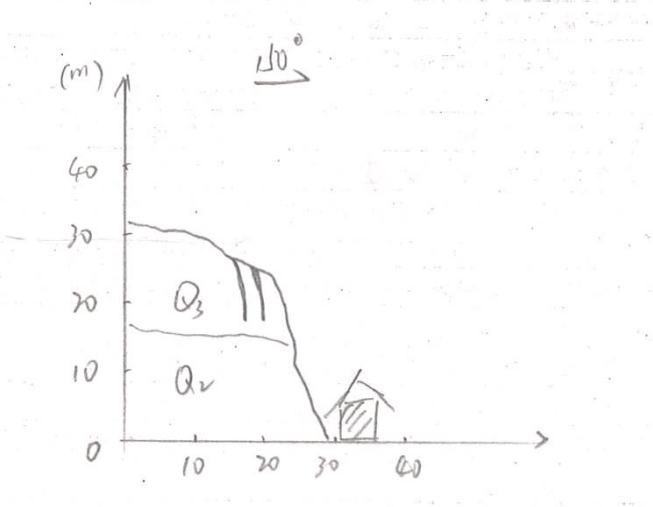 (m)
40
30
20
10
0
Q₃
Q₂
10 20 30 40